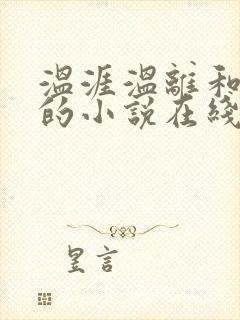 温涯温離和
的小說在綫
昱言